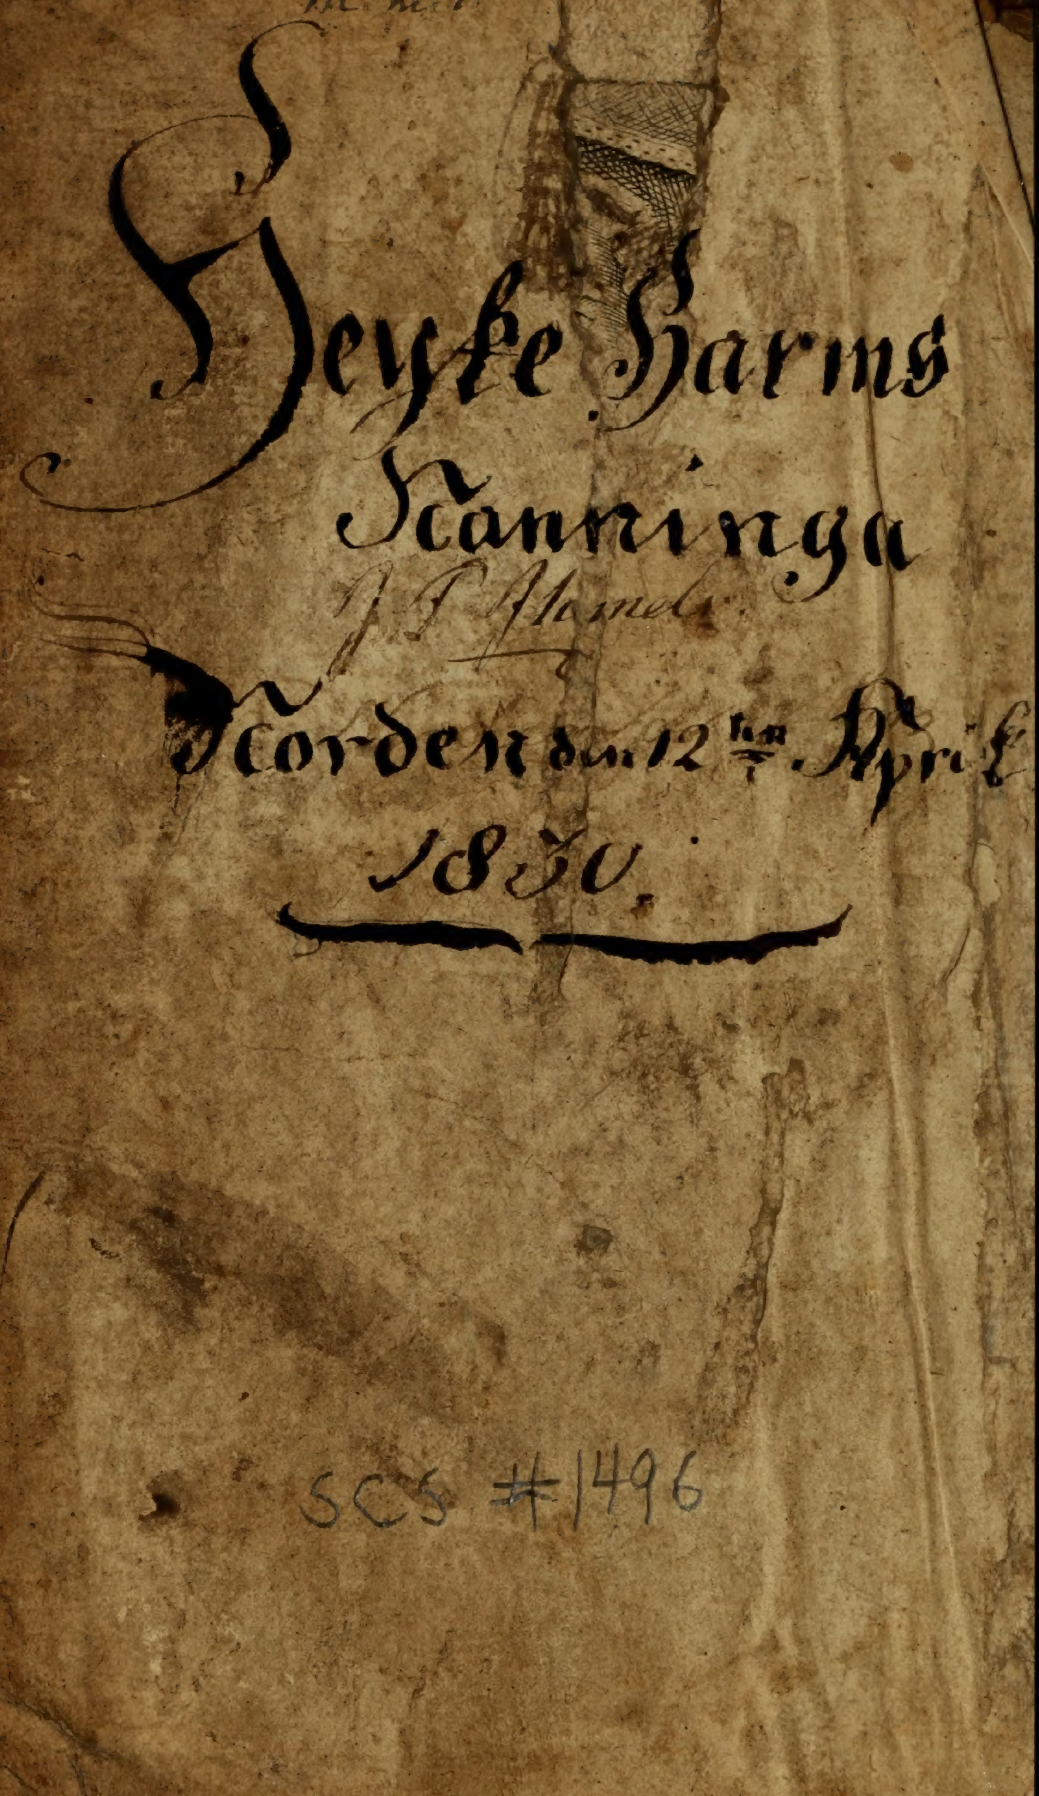 Heyke Harms
Nanninga
J P
Norden den 12ten April
1830.
SCS #1496